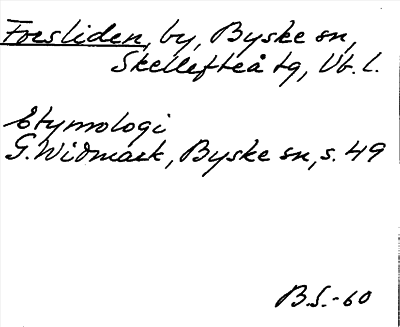 Forsliden, by, Byske sn,
Skellefteå tg, Vb. l.
Etymologi
G. Widmark, Byske sn, s. 49
B.S.-60